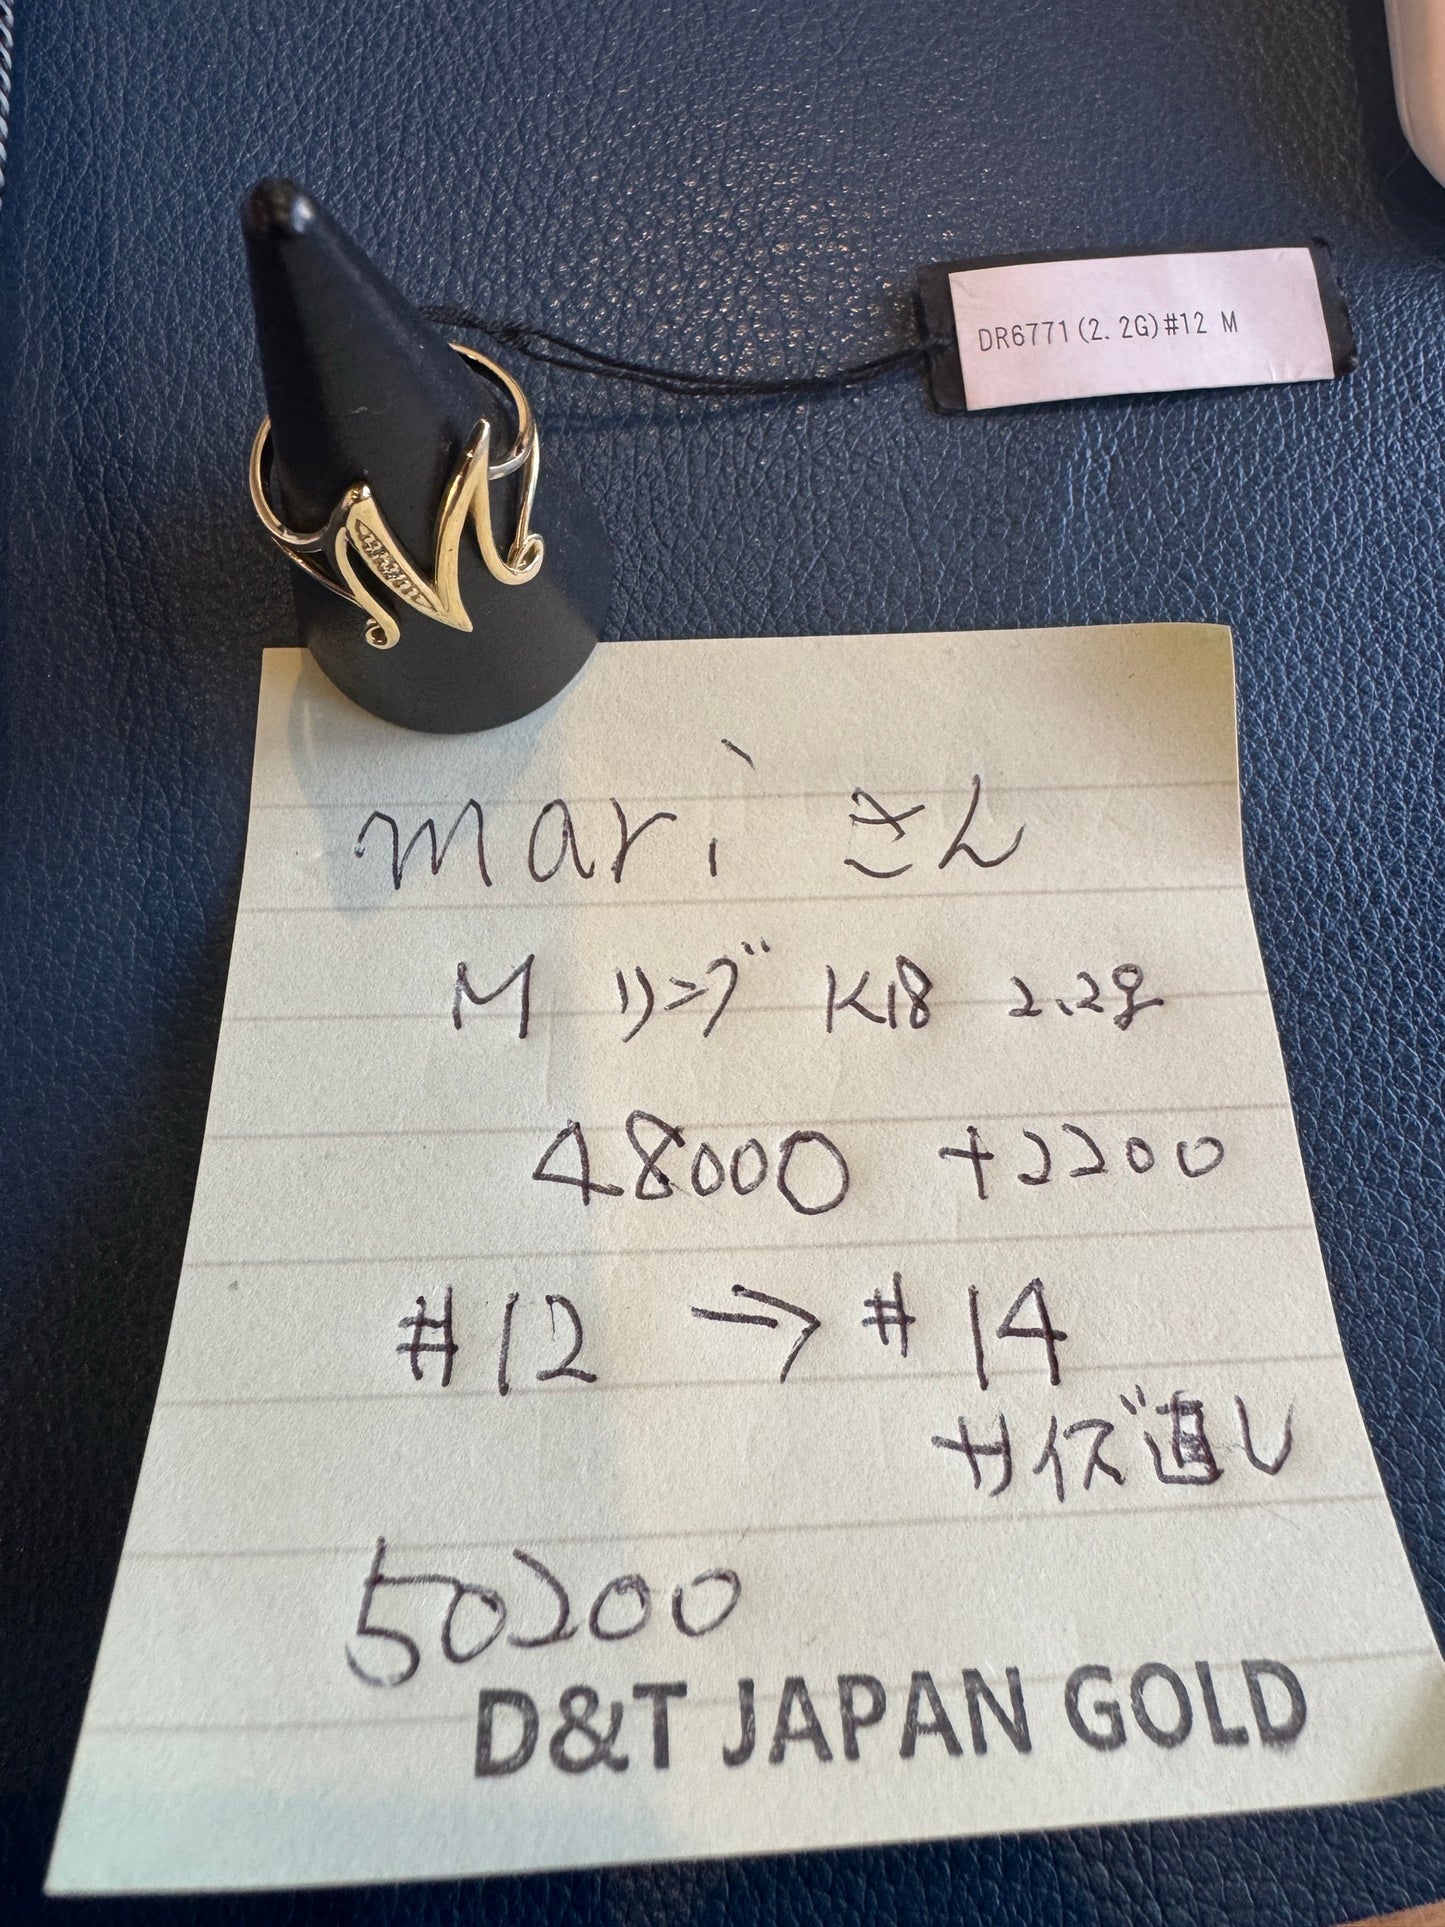 DR6771(2.2G)#12 M
mari さん
M リング K18 2.2g
48000 +2200
#12 → #14
サイズ直し
50200
D&T JAPAN GOLD